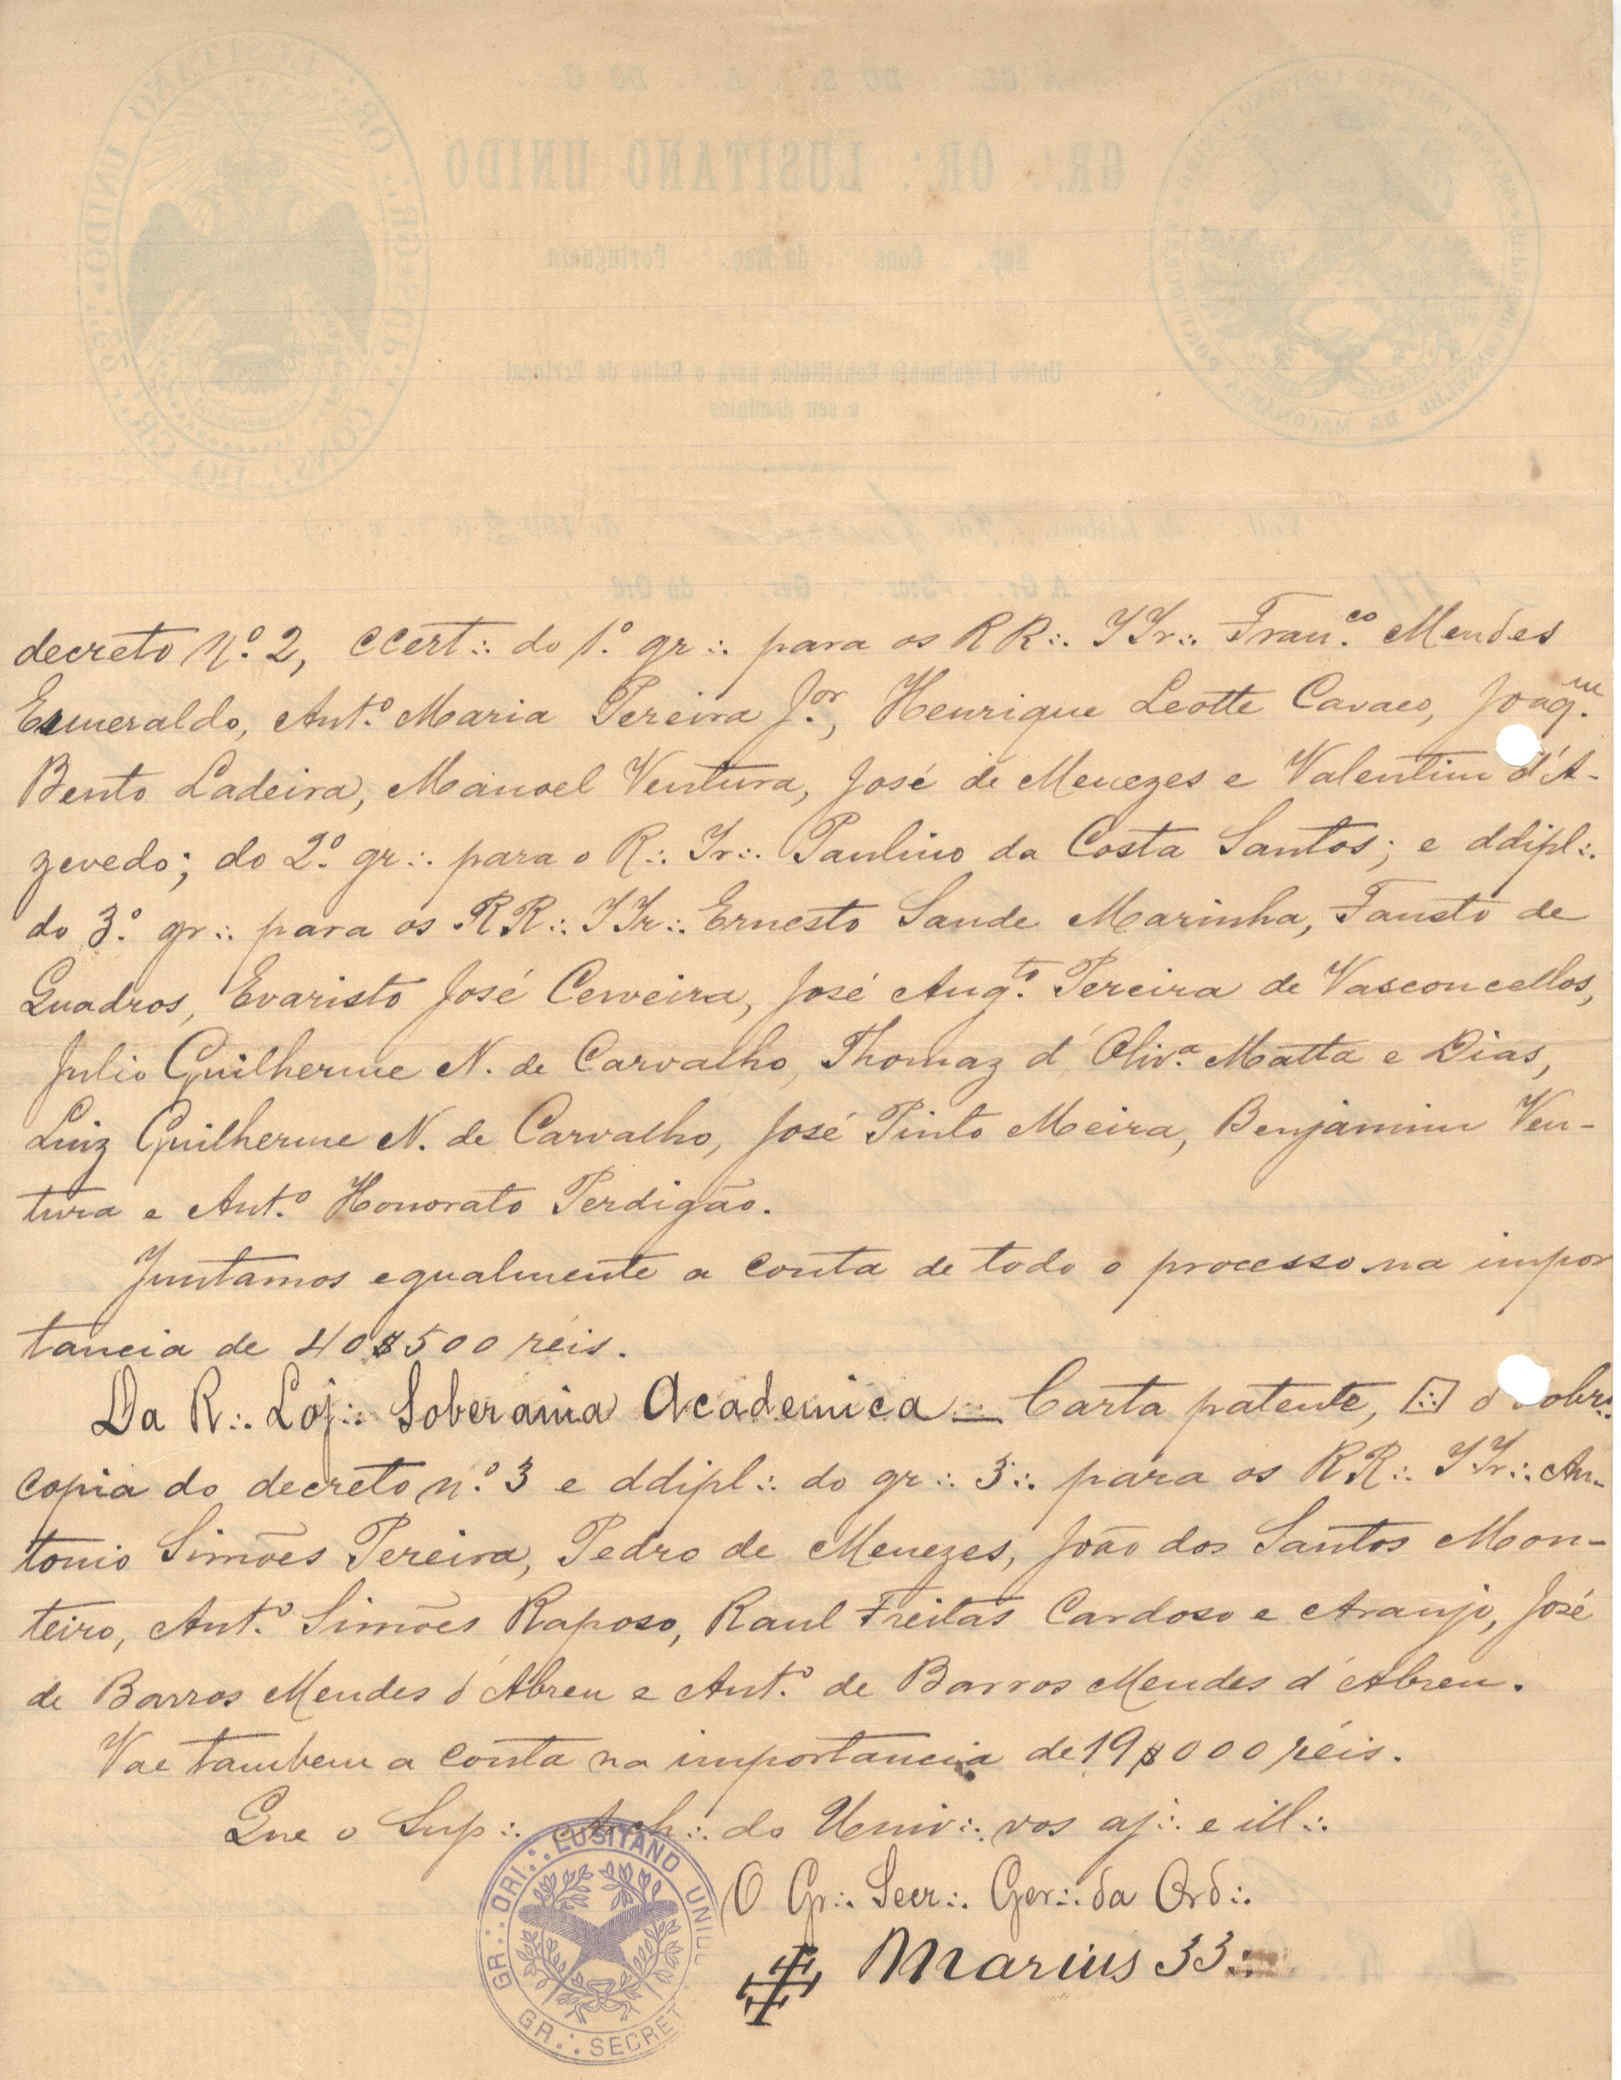 GR∴ OR∴ LUSITANO UNIDO
Unico Legalmente Constituido para o Reino de Portugal
e seus dominios
decreto N.º 2, ccert∴ do 1.º gr∴ para os RR∴ IIr∴ Fran.co Mendes
Esmeraldo, Ant.º Maria Pereira J.or, Henrique Leotte Cavaco, Joaq.m
Bento Ladeira, Manoel Ventura, José de Menezes e Valentim d'A-
zevedo; do 2.º gr∴ para o R∴ Ir∴ Paulino da Costa Santos; e ddipl∴
do 3.º gr∴ para os RR∴ IIr∴ Ernesto Sande Marinha, Fausto de
Quadros, Evaristo José Cerveira, José Aug.to Pereira de Vasconcellos,
Julio Guilherme N. de Carvalho, Thomaz d'Oliv.a Matta e Dias,
Luiz Guilherme N. de Carvalho, José Pinto Meira, Benjamim Ven-
tura e Ant.º Honorato Perdigão.
Juntamos egualmente a conta de todo o processo na impor
tancia de 40$500 réis.
Da R∴ Loj∴ Soberania Academica — Carta patente,
copia do decreto n.º 3 e ddipl∴ do gr∴ 3∴ para os RR∴ IIr∴ An-
tonio Simões Pereira, Pedro de Menezes, João dos Santos Mon-
teiro, Ant.º Simões Raposo, Raul Freitas Cardoso e Araujo, José
de Barros Mendes d'Abreu e Ant.º de Barros Mendes d'Abreu.
Vae tambem a conta na importancia de 19$000 réis.
Que o Sup∴ Arch∴ do Univ∴ vos aj∴ e ill∴
O Gr∴ Secr∴ Ger∴ da Ord∴
Marius 33∴
GR∴ ORI∴ LUSITANO UNIDO
GR∴ SECRET